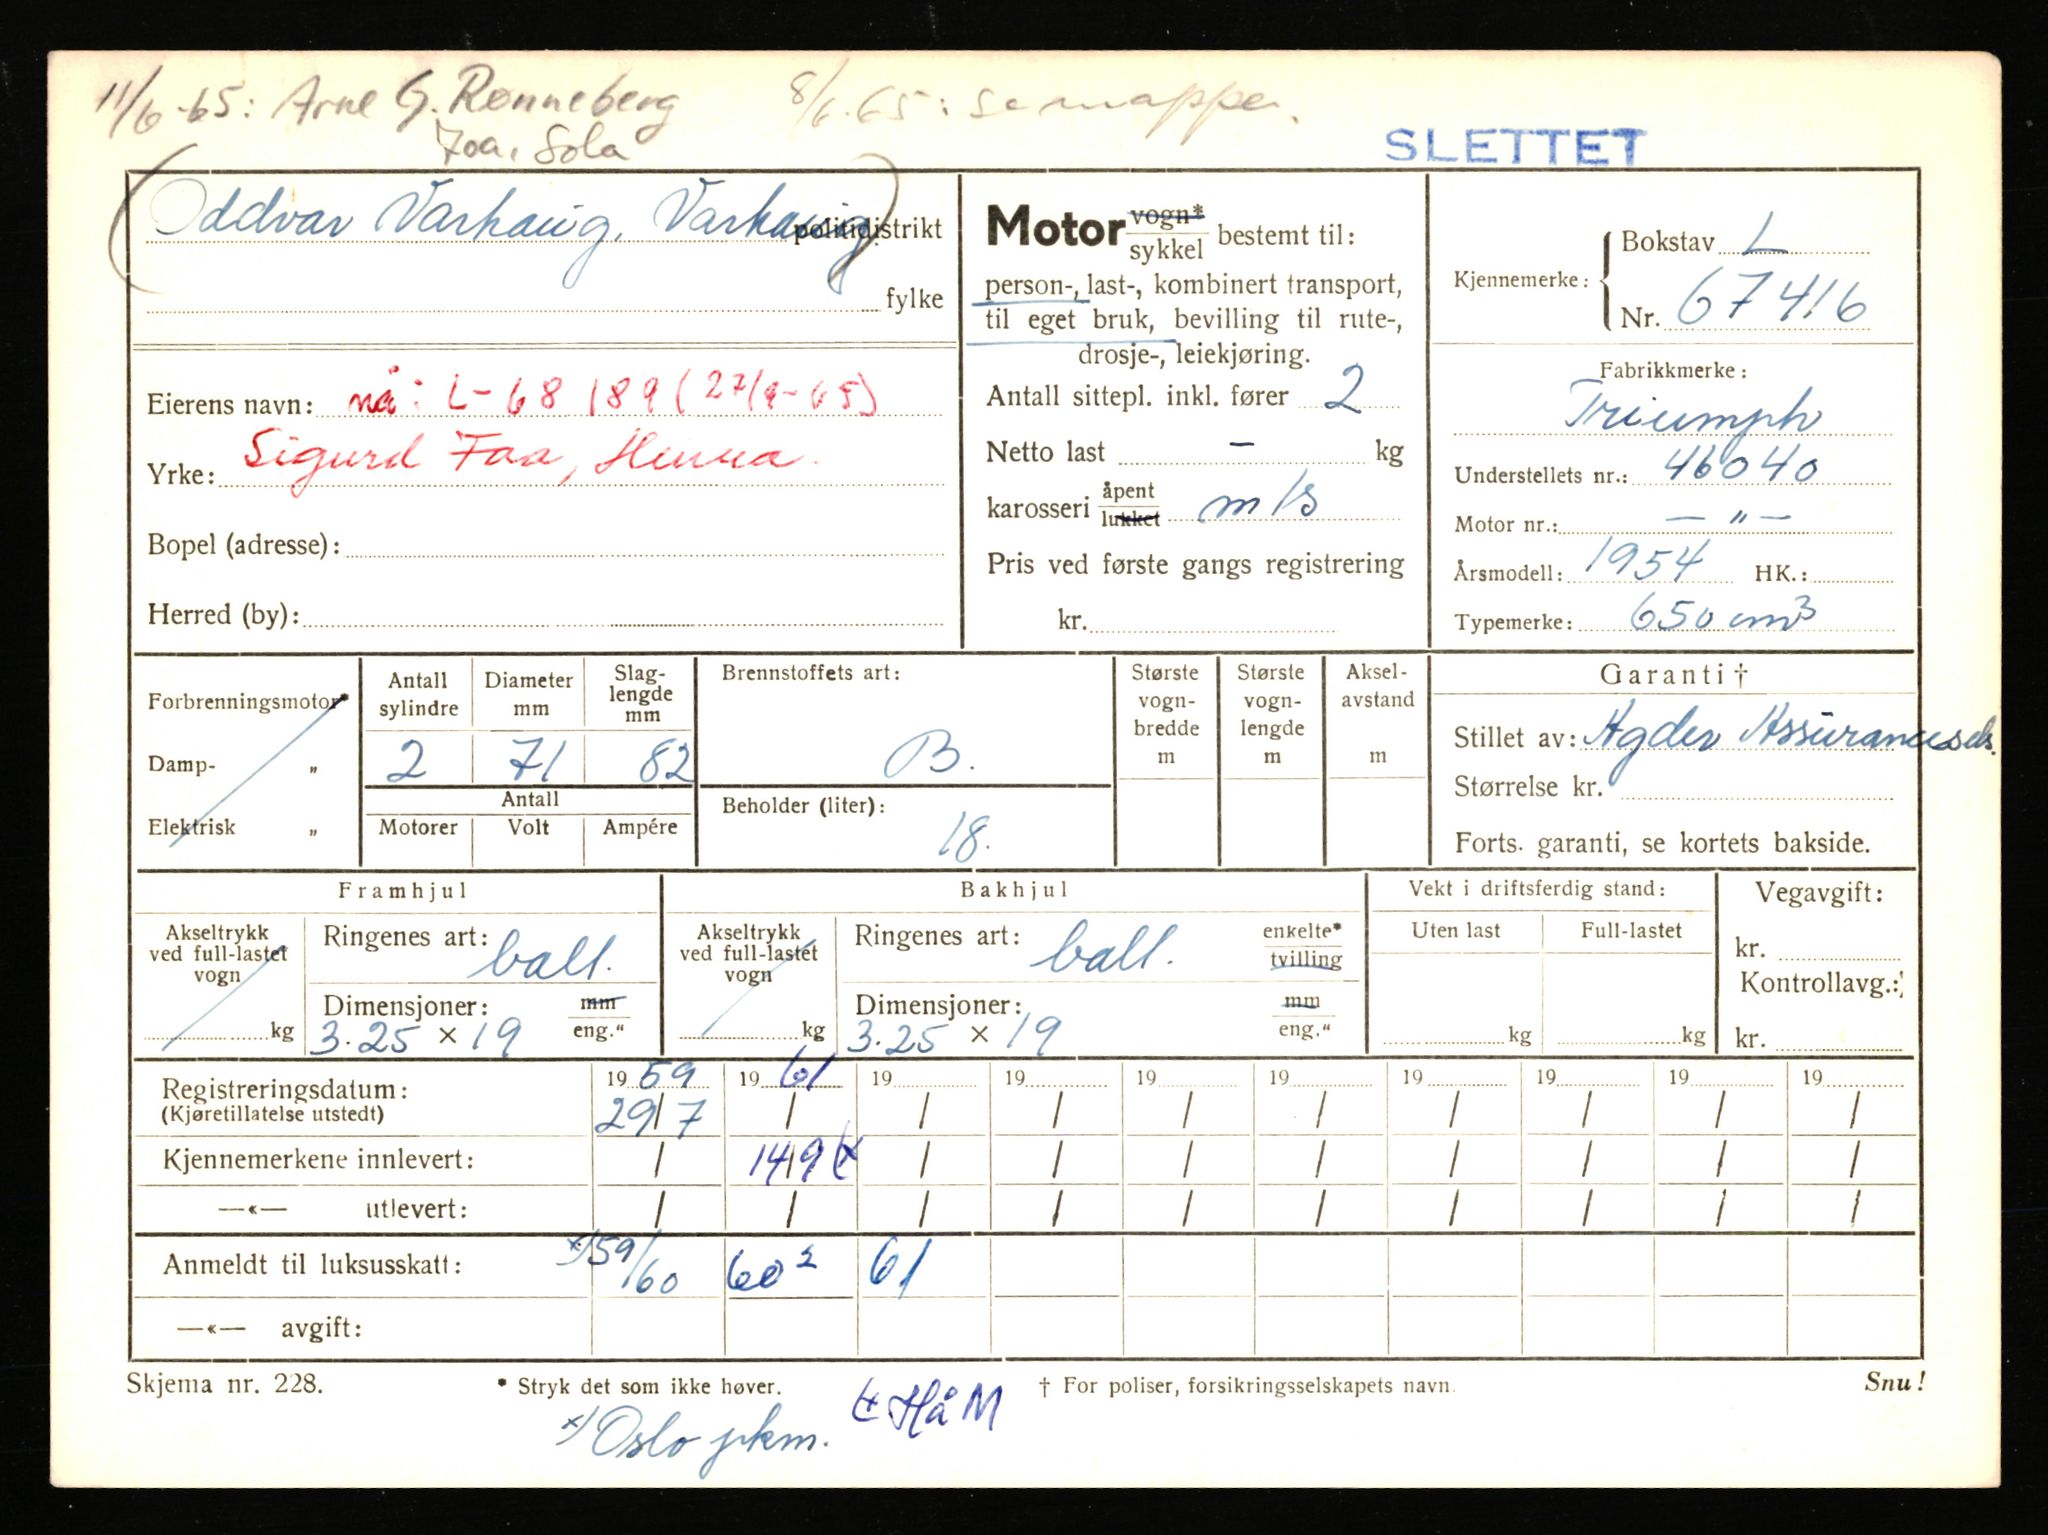 11/6-65: Arne G. Rønneberg 8/6.65: se mappe.
Joa, Sola
SLETTET
Oddvar Varhaug, Varhaug politidistrikt
fylke
Eierens navn: nå: L-68189 (27/9-65)
Yrke: Sigurd Foa, Hinna.
Bopel (adresse):
Herred (by):
Motor vogn*
sykkel bestemt til:
person-, last-, kombinert transport,
til eget bruk, bevilling til rute-,
drosje-, leiekjøring.
Antall sittepl. inkl. fører 2
Netto last - kg
karosseri åpent
lukket m/s
Pris ved første gangs registrering
kr.
Kjennemerke: Bokstav L
Nr. 67416
Fabrikkmerke:
Triumph
Understellets nr.: 46040
Motor nr.: — " —
Årsmodell: 1954 HK.:
Typemerke: 650 cm3
Forbrenningsmotor*
Damp- „
Elektrisk „
Antall sylindre Diameter mm Slag-lengde mm
2 71 82
Antall
Motorer Volt Ampére
Brennstoffets art:
B.
Beholder (liter):
18.
Største vogn-bredde m
Største vogn-lengde m
Aksel-avstand m
Garanti †
Stillet av: Agder Assuransesels.
Størrelse kr.
Forts. garanti, se kortets bakside.
Framhjul
Akseltrykk
ved full-lastet
vogn
kg
Ringenes art: ball.
Dimensjoner: mm
3.25 × 19 eng."
Bakhjul
Akseltrykk
ved full-lastet
vogn
kg
Ringenes art: ball. enkelte*
tvilling
Dimensjoner: mm
3.25 × 19 eng."
Vekt i driftsferdig stand:
Uten last Full-lastet
kg kg
Vegavgift:
kr.
Kontrollavg.:
kr.
Registreringsdatum: 19 59 19 61 19 19 19 19 19 19 19 19
(Kjøretillatelse utstedt) 29/7 / / / / / / / / /
Kjennemerkene innlevert: / 14/9 / / / / / / / /
—«— utlevert: / / / / / / / / / /
Anmeldt til luksusskatt: x/59/60 60² 61
—«— avgift:
Skjema nr. 228. * Stryk det som ikke høver. † For poliser, forsikringsselskapets navn. Snu!
Hå M
x/ Oslo pkm.